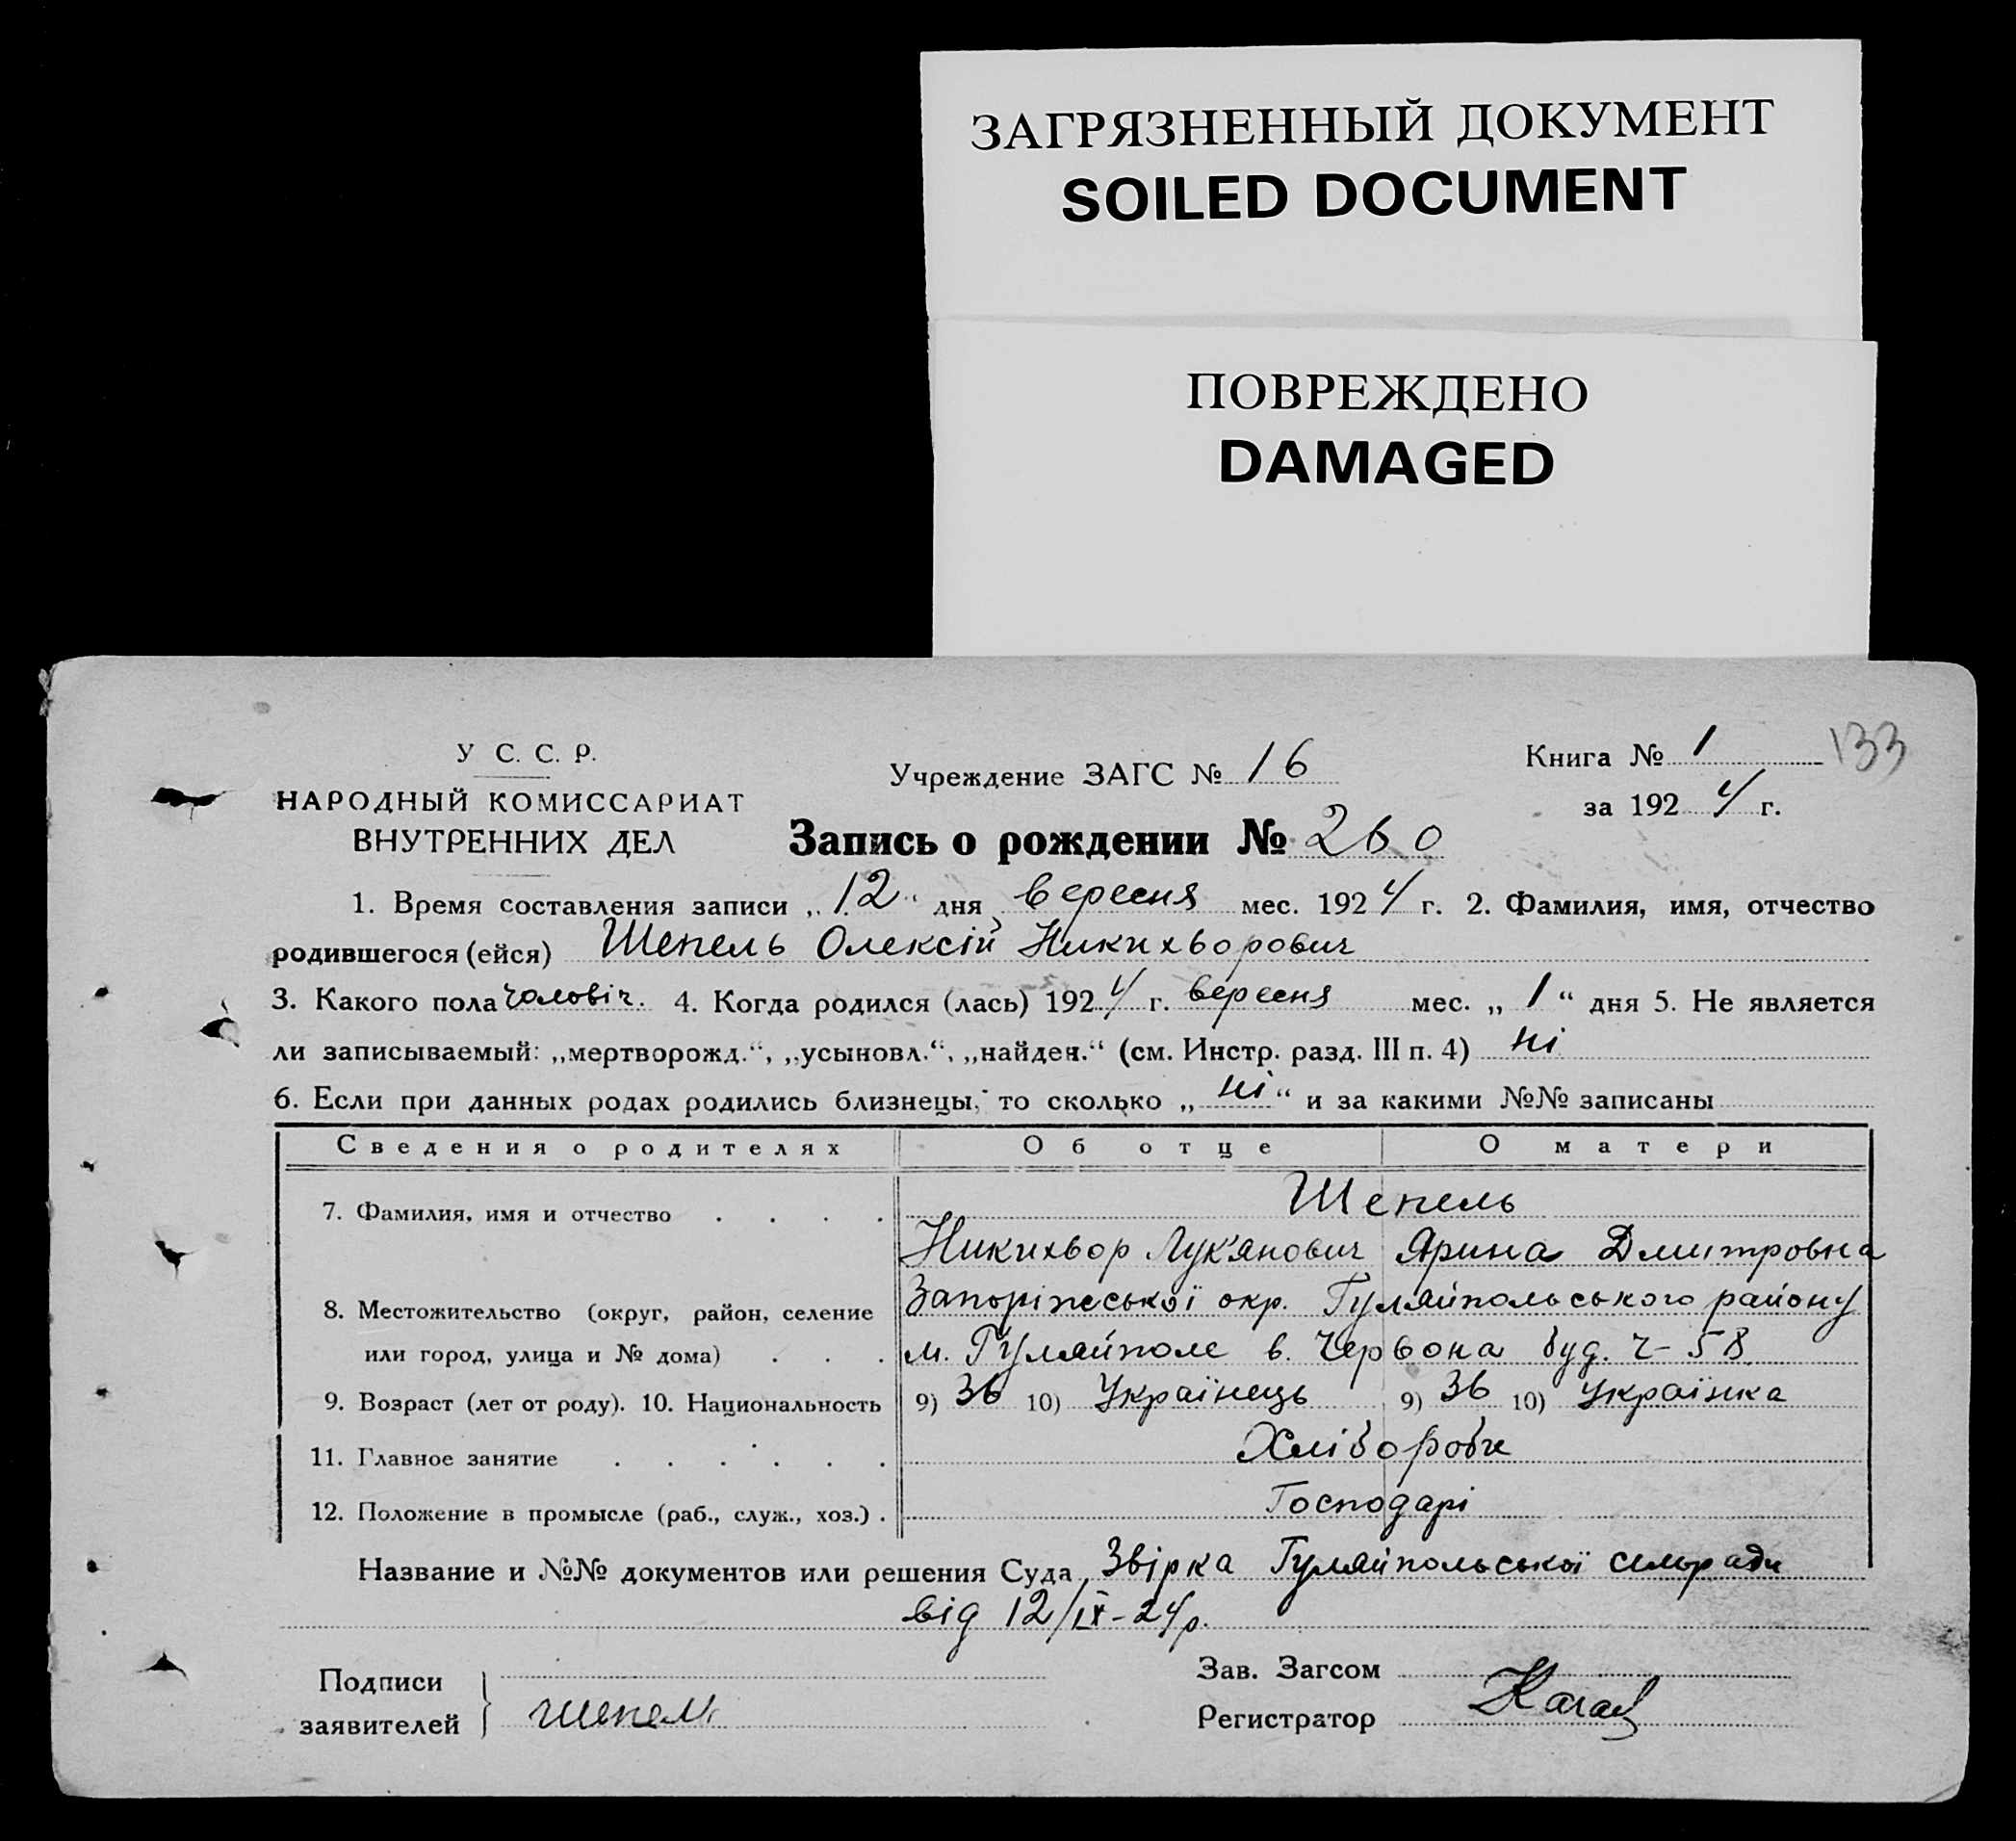 ЗАГРЯЗНЕННЫЙ ДОКУМЕНТ
SOILED DOCUMENT
ПОВРЕЖДЕНО
DAMAGED
У С. С. Р.
НАРОДНЫЙ КОМИССАРИАТ
ВНУТРЕННИХ ДЕЛ
Учреждение ЗАГС № 16
Книга № 1
133
за 1924 г.
Запись о рождении № 260
1. Время составления записи „12" дня вересня мес. 1924 г. 2. Фамилия, имя, отчество
родившегося (ейся) Шепель Олексій Никихворович
3. Какого пола чоловіч. 4. Когда родился (лась) 1924 г. вересня мес. „1“ дня 5. Не является
ли записываемый: „мертворожд.“, „усыновл.“, „найден.“ (см. Инстр. разд. III п. 4) ні
6. Если при данных родах родились близнецы, то сколько „ні“ и за какими №№ записаны
Сведения о родителях Об отце О матери
7. Фамилия, имя и отчество . . . . Шепель
Никихвор Лук'янович Ярина Дмитровна
8. Местожительство (округ, район, селение Запоріжської окр. Гуляйпольського району
или город, улица и № дома) . . . м. Гуляйполе в. Червона буд. ч- 58
9. Возраст (лет от роду). 10. Национальность 9) 36 10) Українець 9) 36 10) Українка
11. Главное занятие . . . . . . Хлібороби
12. Положение в промысле (раб., служ., хоз.) . Господарі
Название и №№ документов или решения Суда Звірка Гуляйпольської сельради
від 12/IX-24р.
Подписи
заявителей } Шепель
Зав. Загсом
Регистратор